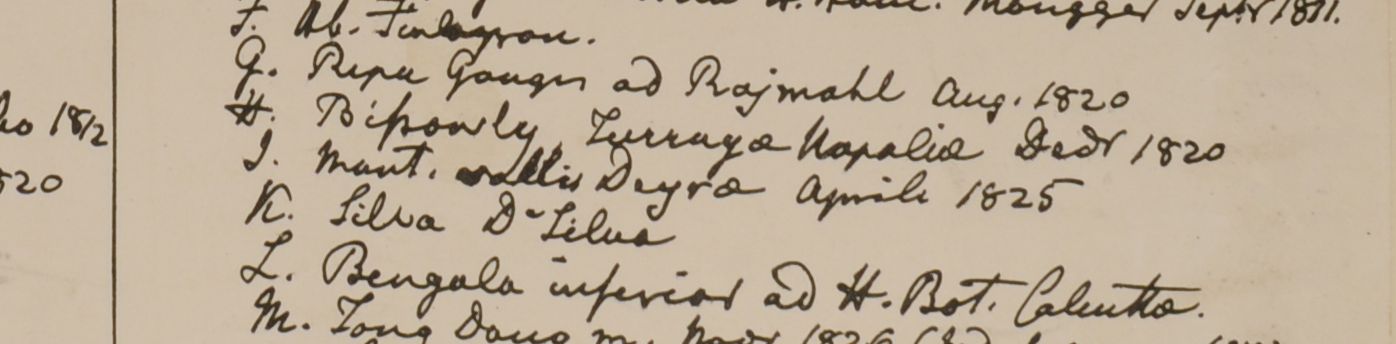 H. Ham. Mongger Septr 1811.
F. Hb. Finlayson.
lo 1812
G. Ripa Gangis ad Rajmahl Aug. 1820
H. Bissowly, Turraya Napalia Decr 1820
520
I. Mont. vallis Deyra Aprili 1825
K. Silva D. Silva
L. Bengala inferior ad H. Bot. Calcutta.
M. Tong Dong Novr 1826